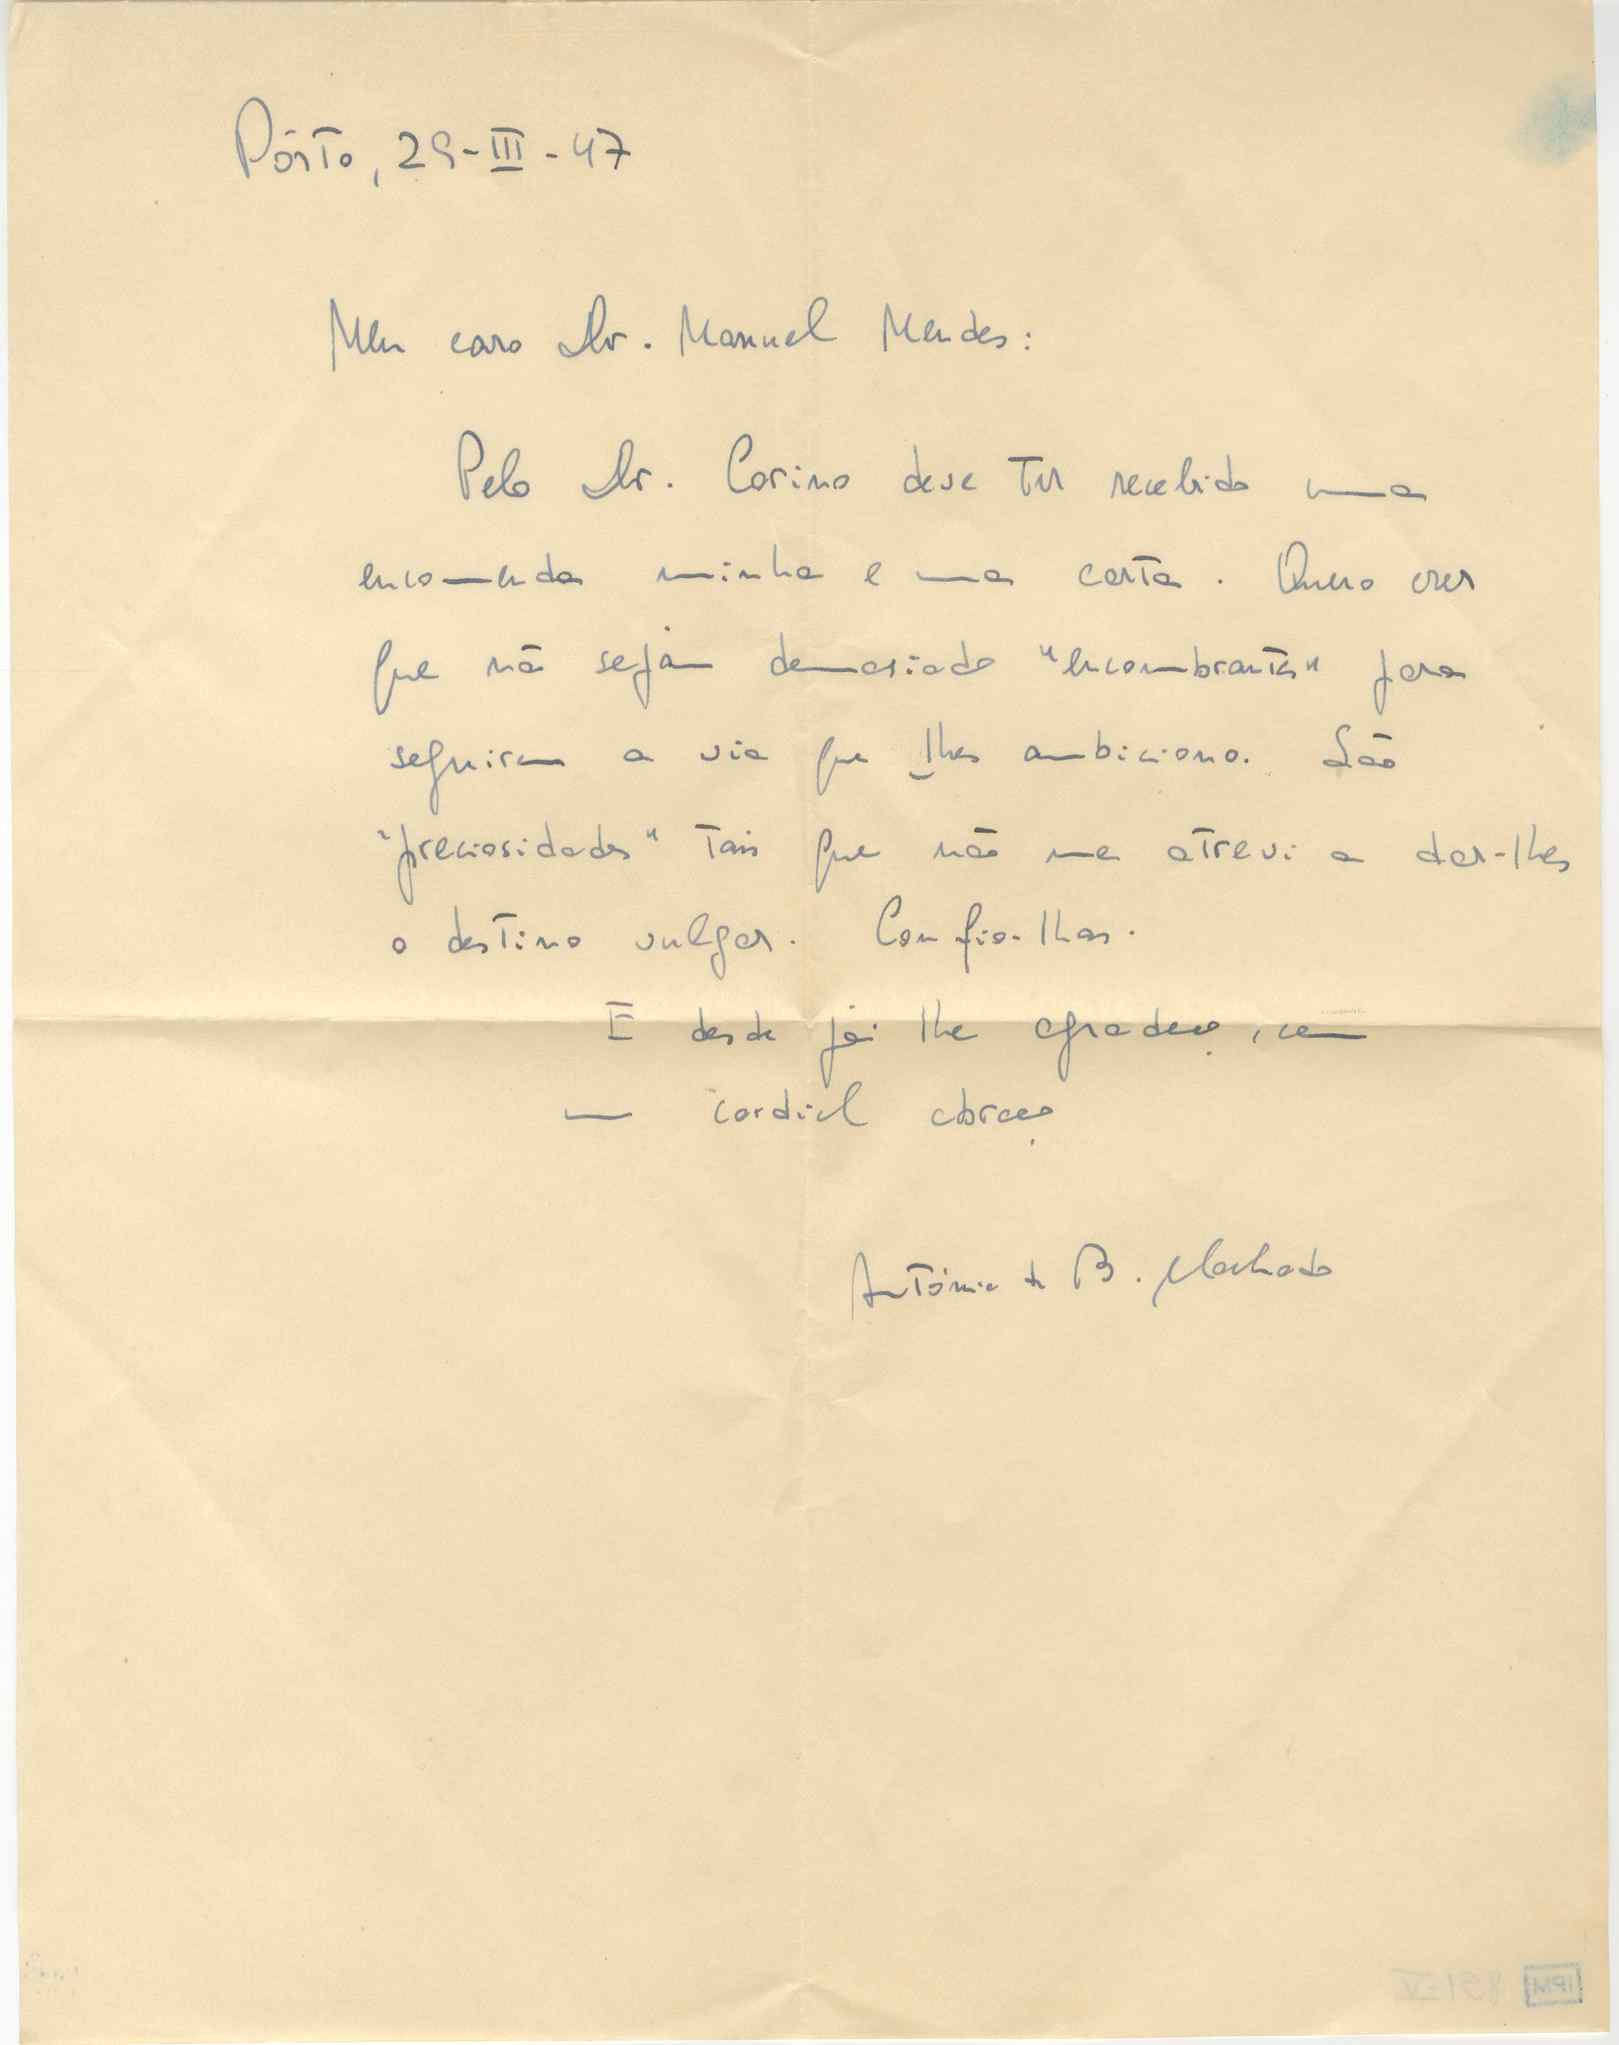 Pôrto, 29-III-47
Meu caro Dr. Manuel Mendes:
Pelo Dr. Corino deve ter recebido uma
encomenda minha e uma carta. Quero crer
que não sejam demasiado "encombrantes" para
seguirem a via que lhes ambiciono. São
"preciosidades" tais que não me atrevi a dar-lhes
o destino vulgar. Confio-lhas.
E desde já lhe agradeço, com
um cordial abraço
António de B. Machado